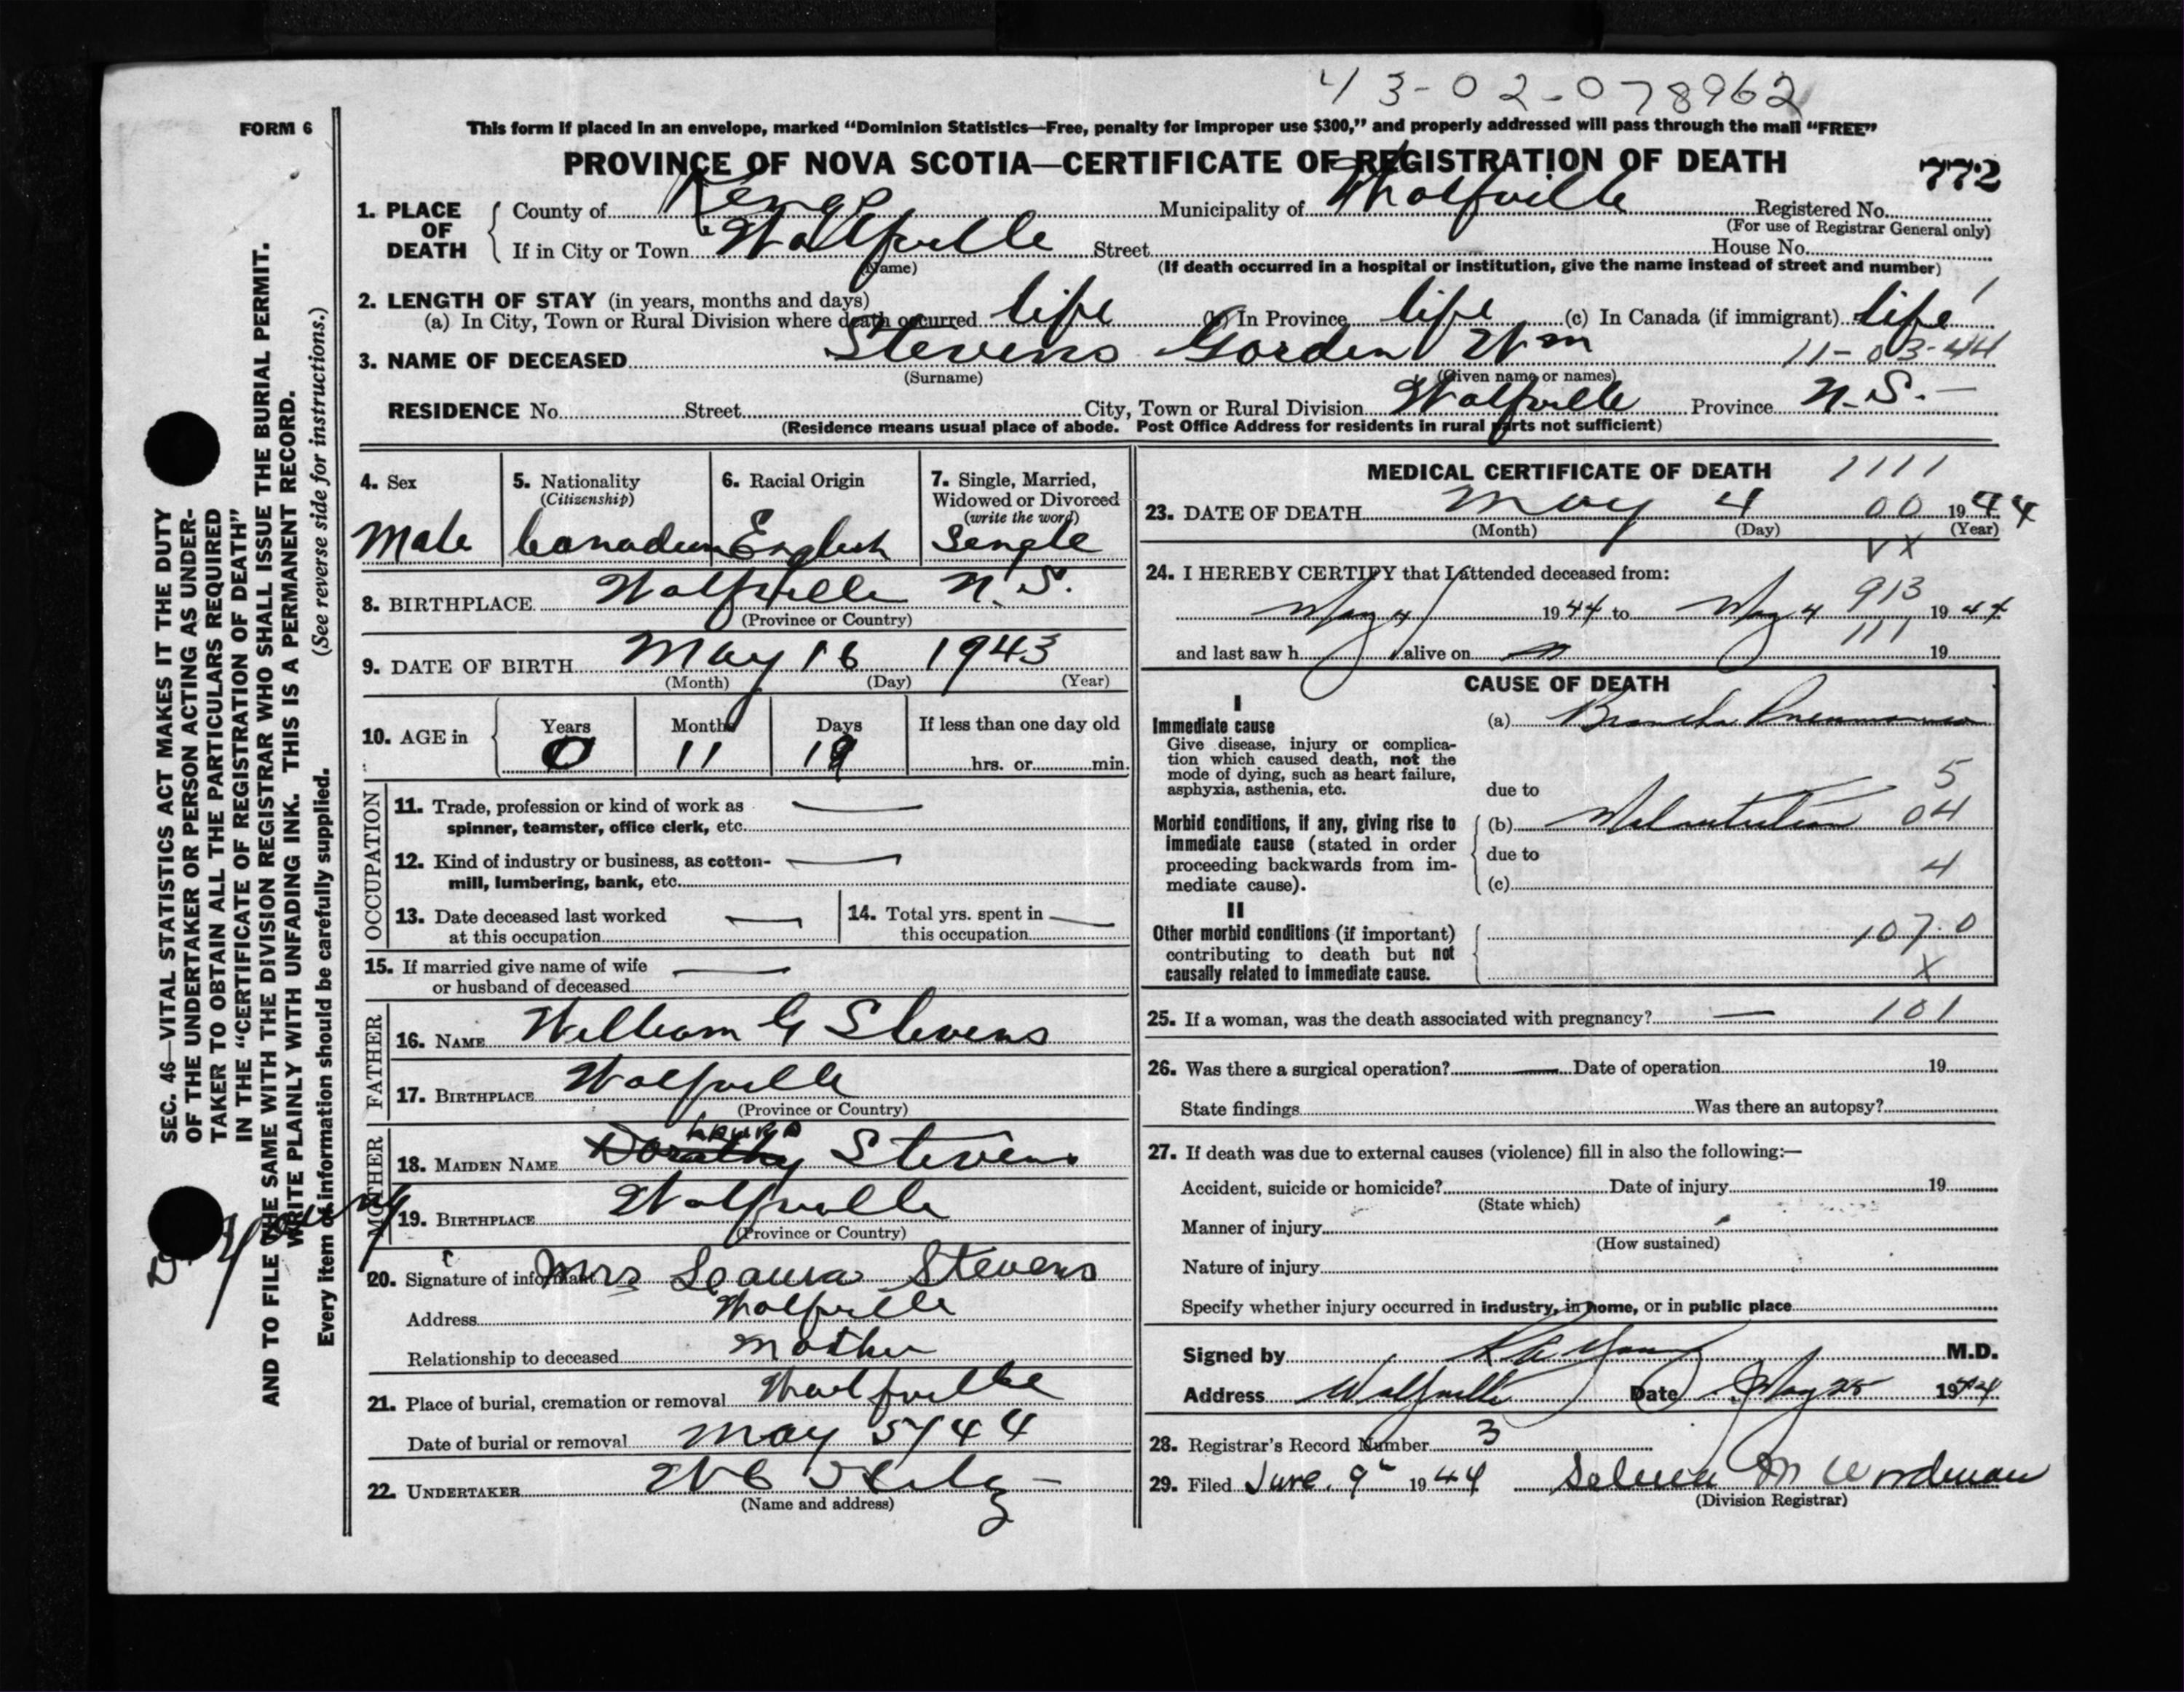 43-02-078962
FORM 6
This form if placed in an envelope, marked “Dominion Statistics—Free, penalty for improper use $300,” and properly addressed will pass through the mail “FREE”
PROVINCE OF NOVA SCOTIA—CERTIFICATE OF REGISTRATION OF DEATH
772
1. PLACE OF DEATH
County of Kings Municipality of Wolfville Registered No.
(For use of Registrar General only)
If in City or Town Wolfville Street House No.
(Name) (If death occurred in a hospital or institution, give the name instead of street and number)
2. LENGTH OF STAY (in years, months and days)
(a) In City, Town or Rural Division where death occurred life (b) In Province life (c) In Canada (if immigrant) life
3. NAME OF DECEASED Stevens Gorden Wm 11-03-44
(Surname) (Given name or names)
RESIDENCE No. Street City, Town or Rural Division Wolfville Province N.S.
(Residence means usual place of abode. Post Office Address for residents in rural parts not sufficient)
4. Sex
Male
5. Nationality
(Citizenship)
Canadian
6. Racial Origin
English
7. Single, Married,
Widowed or Divorced
(write the word)
Single
8. BIRTHPLACE Wolfville N.S.
(Province or Country)
9. DATE OF BIRTH May 16 1943
(Month) (Day) (Year)
10. AGE in
Years Months Days If less than one day old
0 11 19 hrs. or min.
OCCUPATION
11. Trade, profession or kind of work as
spinner, teamster, office clerk, etc.
12. Kind of industry or business, as cotton-
mill, lumbering, bank, etc.
13. Date deceased last worked
at this occupation
14. Total yrs. spent in
this occupation
15. If married give name of wife
or husband of deceased
FATHER
16. NAME William G Stevens
17. BIRTHPLACE Wolfville
(Province or Country)
MOTHER
LAURA
18. MAIDEN NAME Dorothy Stevens
19. BIRTHPLACE Wolfville
(Province or Country)
20. Signature of informant Mrs Leaura Stevens
Address Wolfville
Relationship to deceased Mother
21. Place of burial, cremation or removal Wolfville
Date of burial or removal May 5/44
22. UNDERTAKER
(Name and address)
MEDICAL CERTIFICATE OF DEATH 1111
23. DATE OF DEATH May 4 00 1944
(Month) (Day) (Year)
VX
24. I HEREBY CERTIFY that I attended deceased from:
913
May 4 1944 to May 4 1944
111
and last saw h alive on 19
CAUSE OF DEATH
I
Immediate cause
Give disease, injury or complica-
tion which caused death, not the
mode of dying, such as heart failure,
asphyxia, asthenia, etc.
(a) Broncho Pneumonia
due to 5
Morbid conditions, if any, giving rise to
immediate cause (stated in order
proceeding backwards from im-
mediate cause).
(b) Malnutrition 04
due to
4
(c)
II
Other morbid conditions (if important)
contributing to death but not
causally related to immediate cause.
107.0
X
25. If a woman, was the death associated with pregnancy? 101
26. Was there a surgical operation? Date of operation 19
State findings Was there an autopsy?
27. If death was due to external causes (violence) fill in also the following:—
Accident, suicide or homicide? Date of injury 19
(State which)
Manner of injury
(How sustained)
Nature of injury
Specify whether injury occurred in industry, in home, or in public place
Signed by M.D.
Address Wolfville Date May 25 1944
28. Registrar's Record Number 3
29. Filed June 9 1944 M Wordman
(Division Registrar)
SEC. 46—VITAL STATISTICS ACT MAKES IT THE DUTY
OF THE UNDERTAKER OR PERSON ACTING AS UNDER-
TAKER TO OBTAIN ALL THE PARTICULARS REQUIRED
IN THE “CERTIFICATE OF REGISTRATION OF DEATH”
AND TO FILE THE SAME WITH THE DIVISION REGISTRAR WHO SHALL ISSUE THE BURIAL PERMIT.
WRITE PLAINLY WITH UNFADING INK. THIS IS A PERMANENT RECORD.
Every item of information should be carefully supplied. (See reverse side for instructions.)